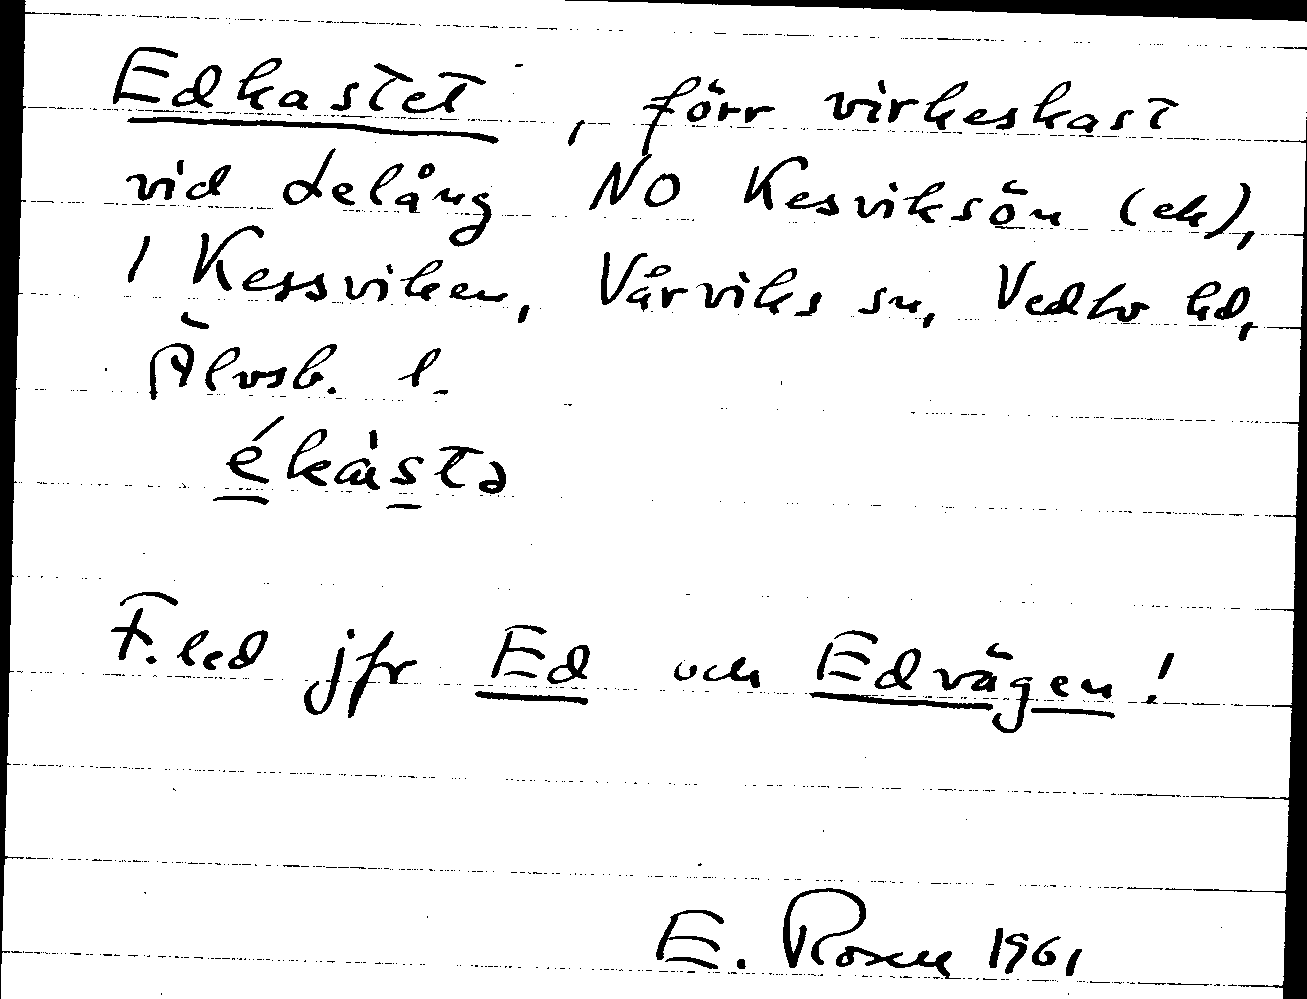 Edkastet, förr virkeskast
vid Lelång NO Kesviksön (ek),
1 Kessviken, Vårviks sn, Vedbo hd,
Älvsb. l.
ékàstə
F.led jfr Ed och Edvägen!
E. Rosen 1961